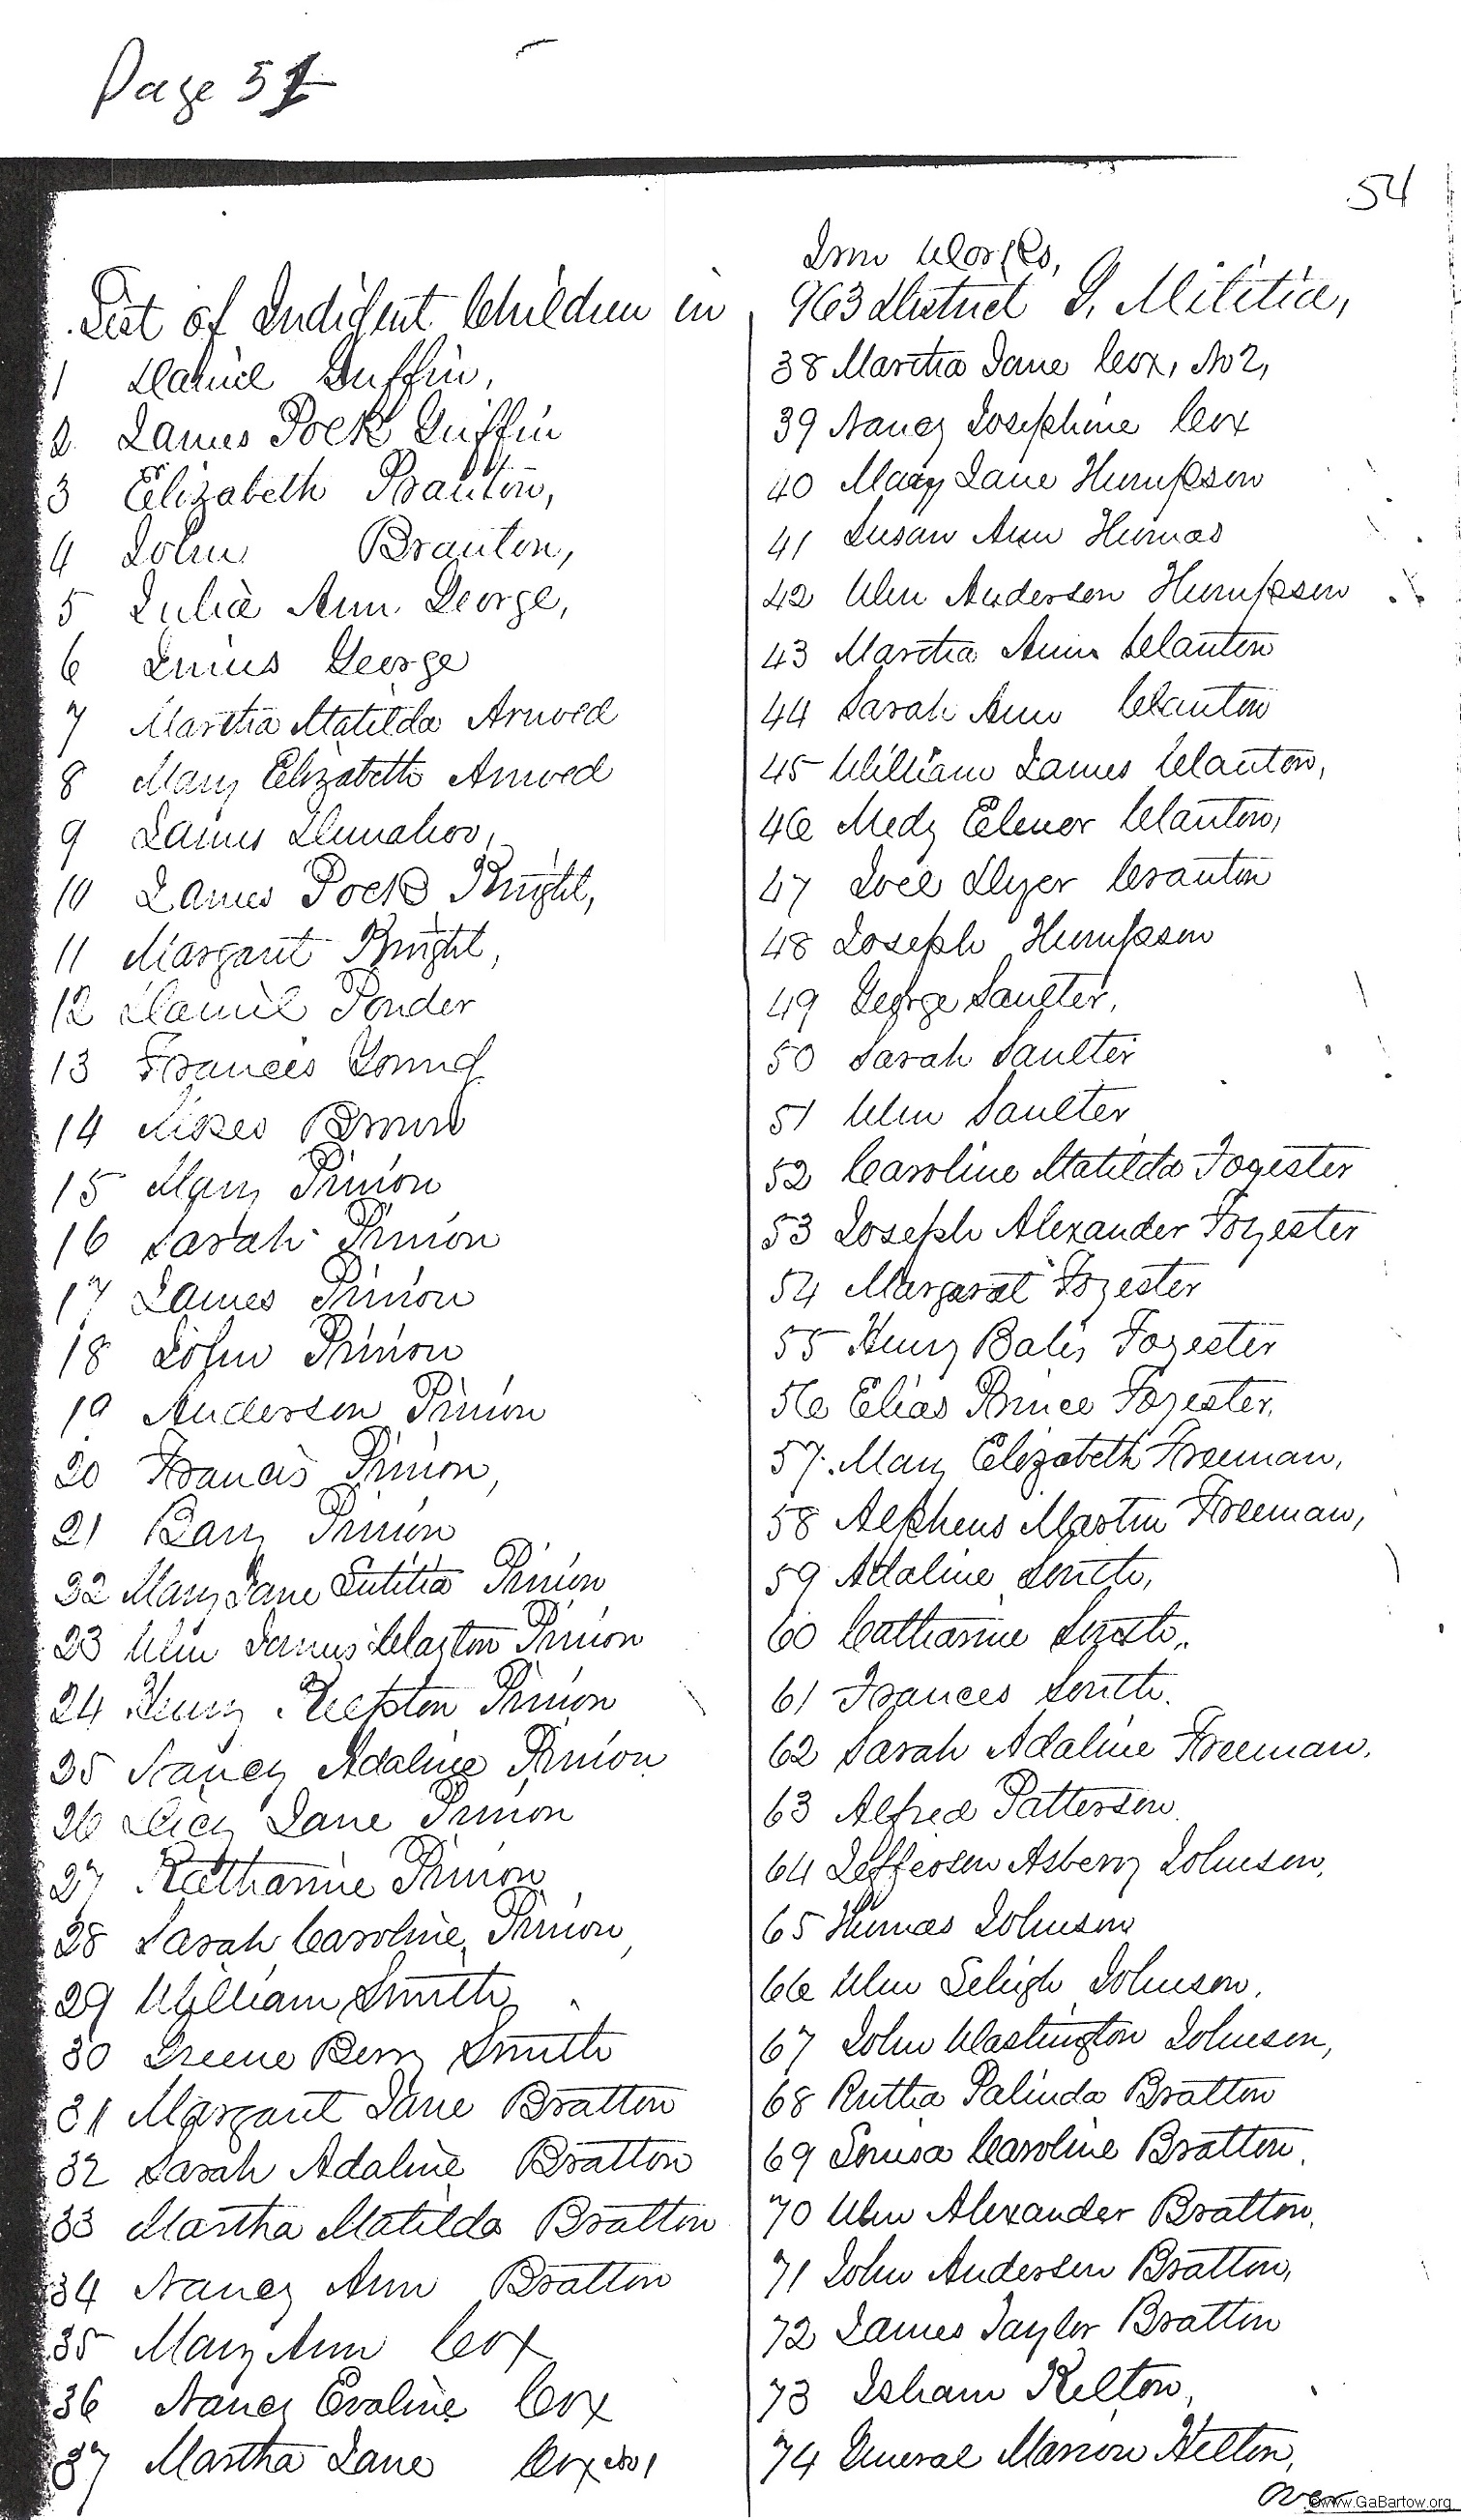 Page 51
54
Iron Works,
List of Indigent Children in 963 District G. Militia,
1 Daniel Griffin,
2 James Polk Griffin
3 Elizabeth Branton,
4 John Branton,
5 Julia Ann George,
6 George
7 Martha Matilda Arwood
8 Mary Elizabeth Arwood
9 James
10 James Polk Knight,
11 Margaret Knight,
12 Daniel Ponder
13 Frances Young
14 Brown
15 Mary Pinion
16 Sarah Pinion
17 James Pinion
18 John Pinion
19 Anderson Pinion
20 Francis Pinion,
21 Pinion
22 Mary Jane Pinion
23 Wm James Pinion
24 Henry Pinion
25 Nancy Adaline Pinion
26 Jane Pinion
27 Katharine Pinion
28 Sarah Caroline Pinion,
29 William Smith
30 Greene Berry Smith
31 Margaret Jane Bratton
32 Sarah Adaline Bratton
33 Martha Matilda Bratton
34 Nancy Ann Bratton
35 Mary Ann Cox
36 Nancy Evaline Cox
37 Martha Jane Cox No 1
38 Martha Jane Cox, No 2,
39 Nancy Josephine Cox
40 Mary Jane
41 Susan Ann
42 Wm Anderson
43 Martha Ann Clanton
44 Sarah Ann Clanton
45 William James Clanton,
46 Clanton,
47 Joel Dyer
48 Joseph
49 George Saulter,
50 Sarah Saulter
51 Wm Saulter
52 Caroline Matilda Forester
53 Joseph Alexander Forester
54 Margaret Forester
55 Henry Forester
56 Elias Bruce Forester,
57. Mary Elizabeth Freeman,
58 Alpheus Martin Freeman,
59 Adaline
60 Catharine
61 Frances
62 Sarah Adaline Freeman.
63 Alfred Patterson
64 Jefferson Asbery Johnson,
65 Thomas Johnson
66 Wm Johnson,
67 John Washington Johnson,
68 Rutha Palinda Bratton
69 Louisa Caroline Bratton
70 Wm Alexander Bratton,
71 John Anderson Bratton,
72 James Taylor Bratton
73 Isham Kelton,
74 General Marion Helton,
over
©www.GaBartow.org